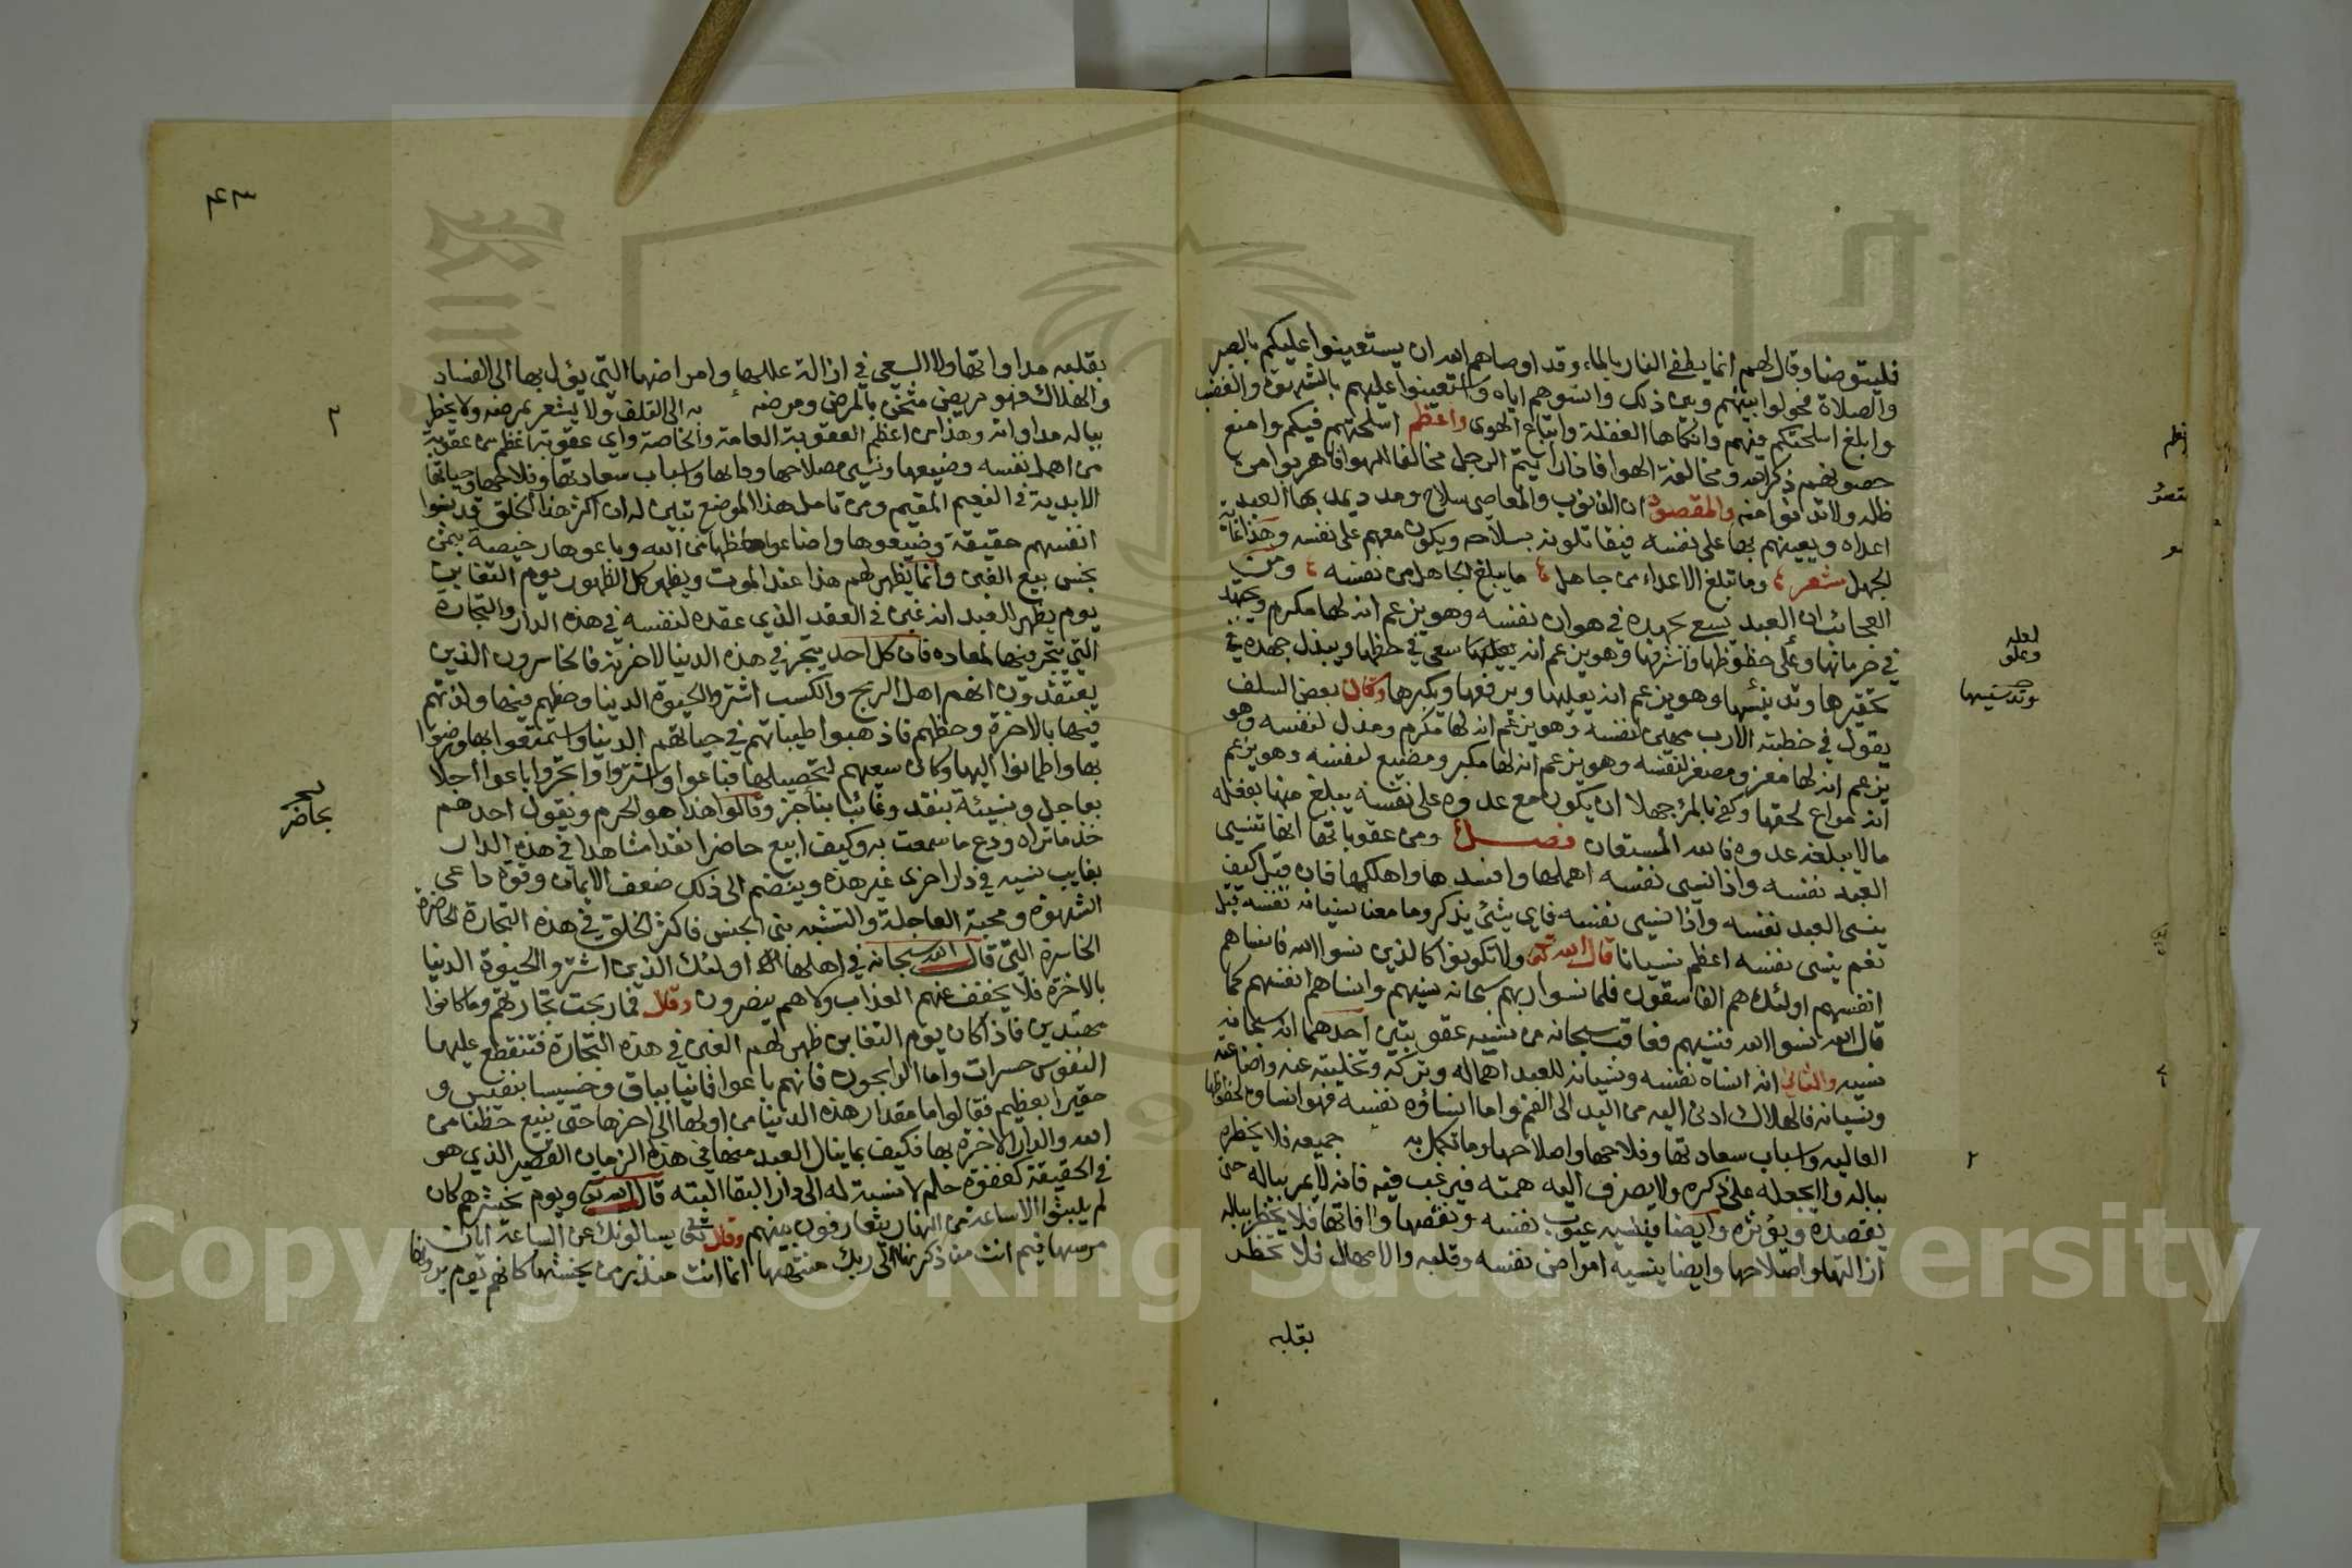 فليتوضا وقال لهم انما يطفي النار بالماء وقد اوصاهم الله ان يستعينوا عليكم بالصبر
والصلاة فحولوا بينهم وبين ذلك وانسوهم اياه واستعينوا عليهم بالشهوة والغضب
وابلغ اسلحتكم فيهم وانكاها الغفلة واتباع الهوى واعظم اسلحتهم فيكم وامنع
حصونهم ذكر الله ومخالفة الهوا فاذا رايتم الرجل مخالفا لهواه فاهربوا من
ظله ولا تدنوا منه والمقصود ان الذنوب والمعاصي سلاح ومدد يمد بها العبد
اعداه ويعينهم بها على نفسه فيقاتلونه بسلاحه ويكون معهم على نفسه وهذا غاية
الجهل شعر وما تبلغ الاعداء من جاهل ما يبلغ الجاهل من نفسه ومن
العجائب ان العبد يسع بجهده في هوان نفسه وهو يزعم انه لها مكرم ويجتهد
في حرمانها وعلى حظوظها واشرفها وهو يزعم انه يسعى في حظها ويبذل جهده في
تحقيرها وتدنيسها وهو يزعم انه يعليها ويرفعها ويكبرها وكان بعض السلف
يقول في خطبته الا رب مهين لنفسه وهو يزعم انه لها مكرم ومذل لنفسه وهو
يزعم انه لها معز ومصغر لنفسه وهو يزعم انه لها مكبر ومضيع لنفسه وهو يزعم
انه مراع لحقها وكفى بالمرء جهلا ان يكون مع عدوه على نفسه يبلغ منها بفعله
ما لا يبلغه عدوه فالله المستعان فصل ومن عقوباتها انها تنسي
العبد نفسه واذا نسي نفسه اهملها وافسدها واهلكها فان قيل كيف
ينسى العبد نفسه واذا نسي نفسه فاي شيء يذكر وما معنا نسيانه نفسه قيل
نعم ينسى نفسه اعظم نسيانا قال الله تعالى ولا تكونوا كالذين نسوا الله فانساهم
انفسهم اولئك هم الفاسقون فلما نسوا ربهم سبحانه نسيهم وانساهم انفسهم كما
قال الله نسوا الله فنسيهم فعاقب سبحانه من نسيه عقوبتين احدهما انه سبحانه
نسيه والثاني انه انساه نفسه ونسيانه للعبد اهماله وتركه وتخليته عنه واضاعته
ونسيانه فالهلاك ادنى اليه من اليد الى الفم واما انساؤه نفسه فهو انساؤه لحظوظها
العاليه واسباب سعادتها وفلاحها واصلاحها وما تكمل به جميعه فلا يخطره
بباله ولا يجعله على ذكره ولا يصرف اليه همته فيرغب فيه فانه لا يمر بباله حتى
يقصده ويؤثره وايضا فينسيه عيوب نفسه ونقصها وافاتها فلا يخطر بباله
ازالتها واصلاحها وايضا ينسيه امراض نفسه وقلبه والامها فلا يخطر
بقلبه
لعله
وعلو
وتدسيسها
٢
٤٣
بقلبه مداواتها ولا السعي في ازالة عللها وامراضها التي يؤل بها الى الفساد
والهلاك فهو مريض مثخن بالمرض ومرضه به الى التلف ولا يشعر بمرضه ولا يخطر
بباله مداواته وهذا من اعظم العقوبة العامة والخاصة واي عقوبة اعظم من عقوبة
من اهمل نفسه وضيعها ونسي مصلاحها وما بها واسباب سعادتها وفلاحها وحياتها
الابدية في النعيم المقيم ومن تامل هذا الموضع تبين له ان اكثر هذا الخلق قد نسوا
انفسهم حقيقة وضيعوها واضاعوا حظها من الله وباعوها رخيصة بثمن
بخس بيع الغبن وانما يظهر لهم هذا عند الموت ويظهر كل الظهور يوم التغابن
يوم يظهر للعبد انه غبن في العقد الذي عقده لنفسه في هذه الدار والتجارة
التي يتجر فيها لمعاده فان كل احد يتجر في هذه الدنيا لاخرته فالخاسرون الذين
يعتقدون انهم اهل الربح والكسب اشتروا الحيوة الدنيا وحظهم فيها ولذتهم
فيها بالاخرة وحظهم فاذهبوا طيباتهم في حياتهم الدنيا واستمتعوا بها ورضوا
بها واطمانوا اليها وكان سعيهم لتحصيلها فباعوا واشتروا واتجروا باعوا اجلا
بعاجل ونسيئة بنقد وغائبا بناجز وقالوا هذا هو الحزم ويقول احدهم
خذ ما تراه ودع ما سمعت به وكيف ابيع حاضرا نقدا مشاهدا في هذه الدار
بغايب نسيه في دار اخرى غير هذه وينضم الى ذلك ضعف الايمان وقوة داعي
الشهوة ومحبة العاجلة والتشبه ببني الجنس فاكثر الخلق في هذه التجارة الحاضرة
الخاسرة التي قال الله سبحانه في اهلها اولئك الذين اشتروا الحيوة الدنيا
بالاخرة فلا يخفف عنهم العذاب ولا هم ينصرون وقال فما ربحت تجارتهم وما كانوا
مهتدين فاذا كان يوم التغابن ظهر لهم الغبن في هذه التجارة فتنقطع عليها
النفوس حسرات واما الرابحون فانهم باعوا فانيا بباق وخسيسا بنفيس و
حقيرا بعظيم فقالوا ما مقدار هذه الدنيا من اولها الى اخرها حتى نبيع حظنا من
الله والدار الاخرة بها فكيف بما ينال العبد منها في هذه الزمان القصير الذي هو
في الحقيقة كغفوة حلم لا نسبة له الى دار البقا البته قال الله تعالى ويوم نحشرهم كان
لم يلبثوا الا ساعة من النهار يتعارفون بينهم وقال تعالى يسالونك عن الساعة ايان
مرسها فيم انت من ذكرها الى ربك منتهها انما انت منذر من يخشها كانهم يوم يرونها
٢
بحاضر